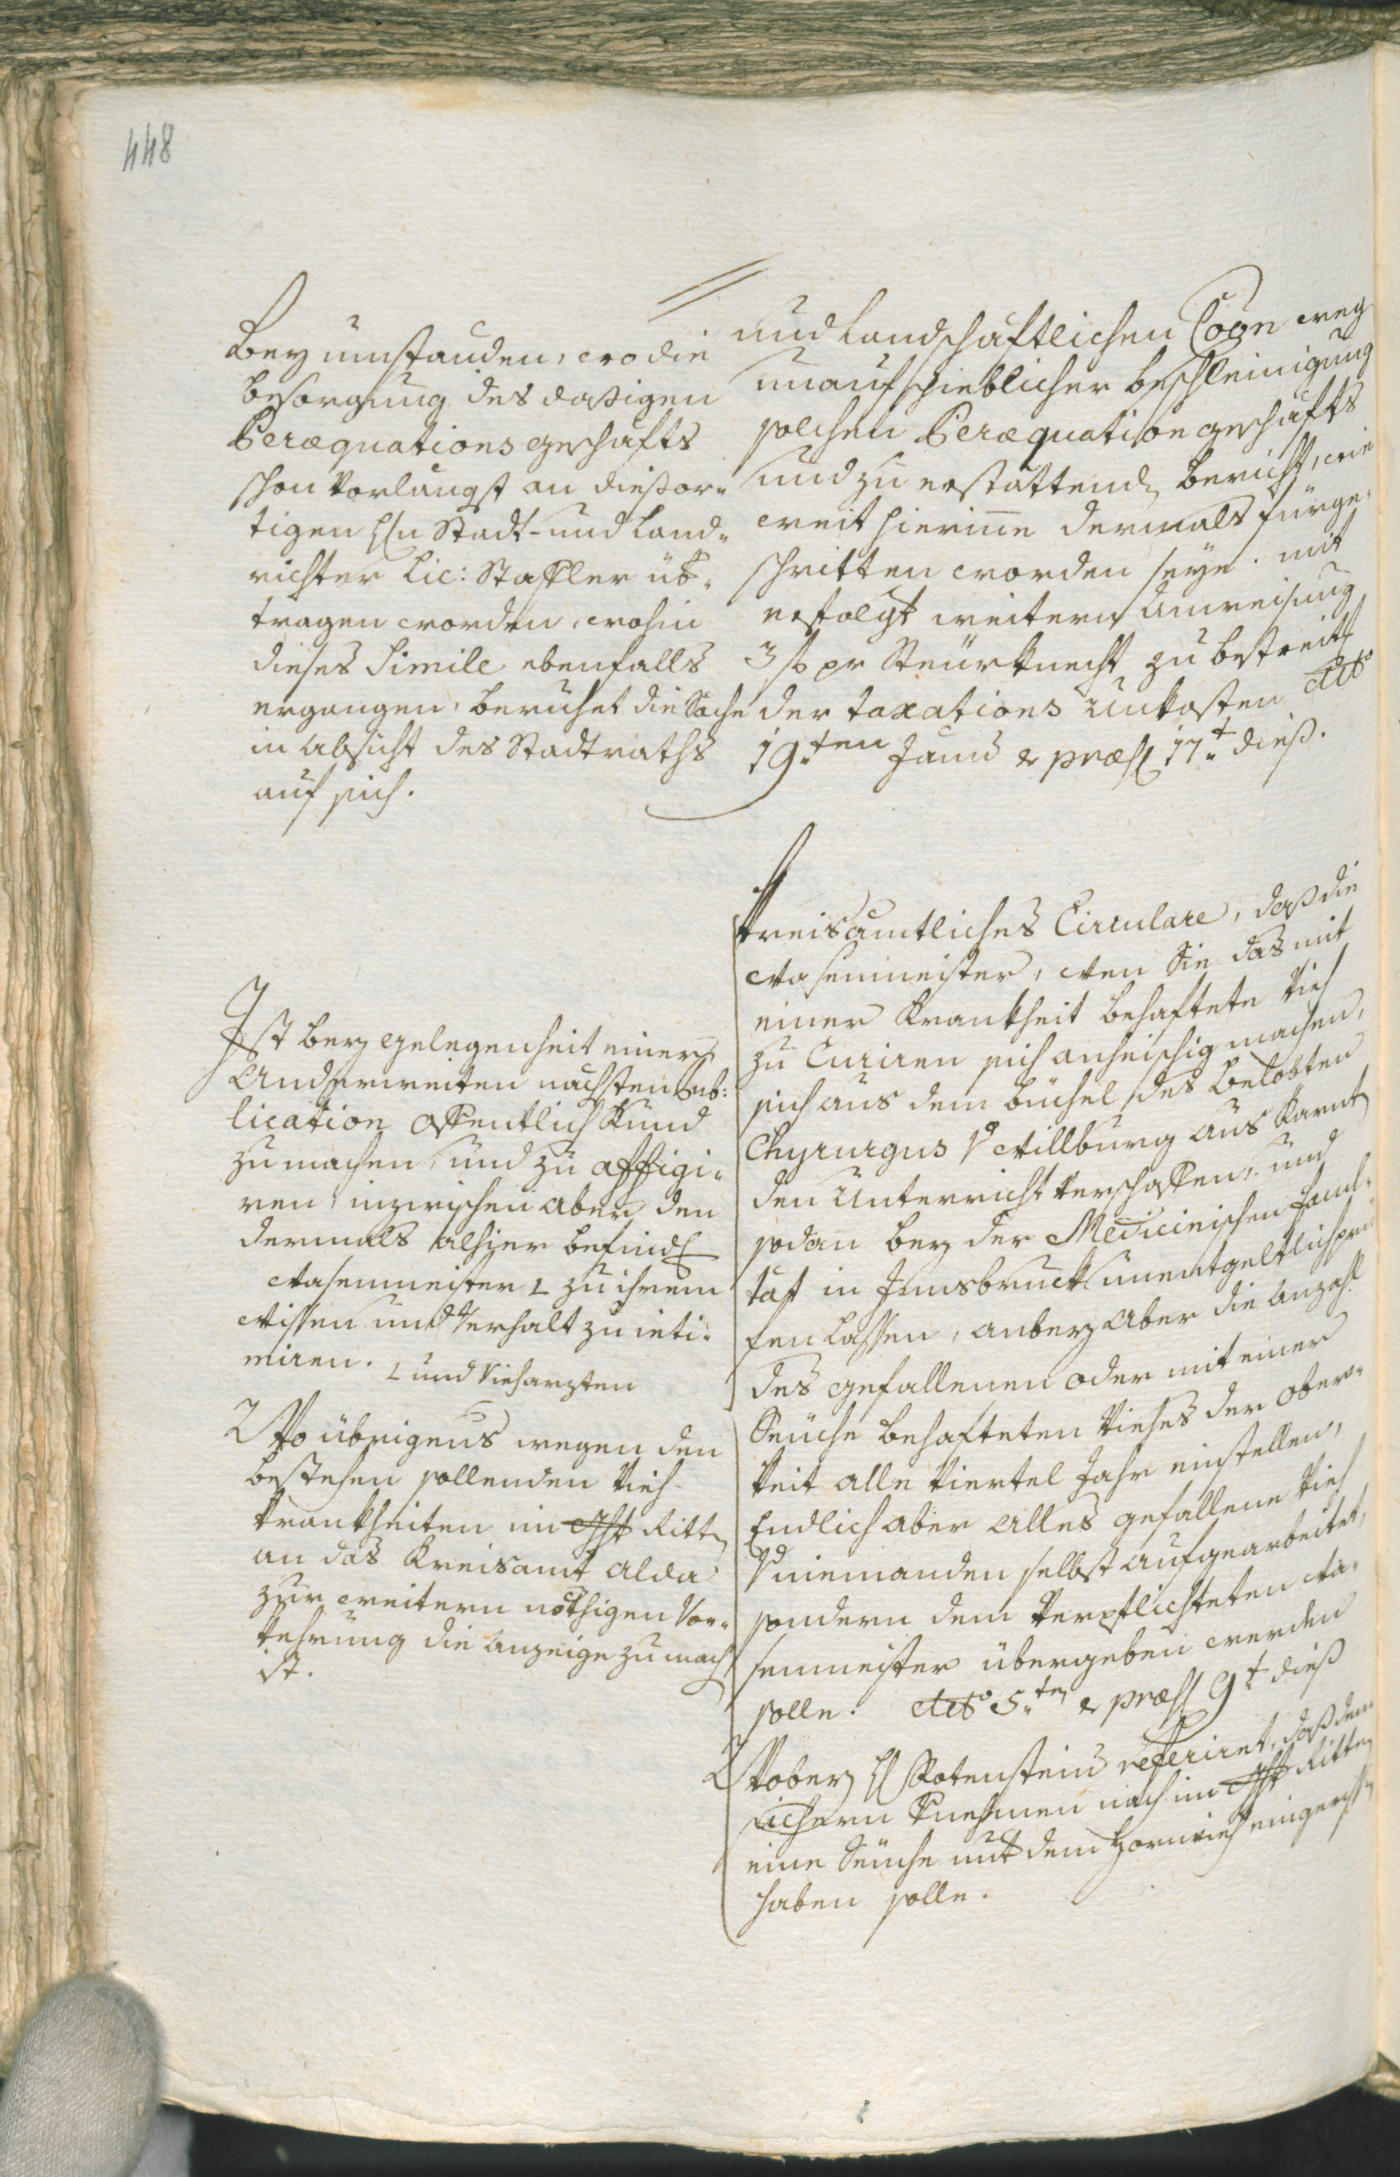 448
Bey umständen, wo die
besorgung des dasigen
Peræquations geschäfts
schon vorlängst an diesor-
tigen H: Stadt- und Land-
richter Lic: Stafler üb-
tragen worden, wohin
dieses Simile ebenfalls
ergangen, beruhet die Sache
in absicht des Stadtraths
auf sich.
und Landschäftlichen Coôn weg
unaufschieblicher beschleinigung
solchen Peræquation geschäfts
und zu erstattend bericht, wie
weit hierinne dermals fürge-
schritten worden seye. mit
erfolgt weitern Anweisung
3 pr Steürknecht zu bestreitt
der taxations Unkosten
19ten Junÿ & præs 17t dieß.
Ist bey Gelegenheit einer
Anderweiten nächsten Pub-
lication offentlich Kund
zu machen, und zu affigi-
ren, inzwischen aber den
dermals alhier befind
Wasenmeister L zu ihrem
Wissen und Verhalt zu inti-
miren. L und Vieharzten
2 Wo übrigens wegen den
bestehen sollenden Vieh-
krankheiten im Ritte
an das Kreisamt alda
zur weitern nöthigen Vor-
kehrung die anzeige zu mach
ist.
Kreisämtliches Circulare, daß die
Wasenmeister, Wen Sie das mit
einer Krankheit behaftete Vieh
zu Curiren sich anheischig machen,
sich aus dem büchel des belobten
Chyrurgus v Willburg aus Kärnt
den Unterricht verschaffen, und
sodan bey der Medicinischen Facul-
tät in Innsbruck unentgeltlich prü
fen lassen, anbey aber die anzahl
des gefallenen oder mit einer
Seüche behafteten Viehes der Ober-
keit alle Viertel Jahr einstellen,
Endlich aber alles gefallene Vieh
v niemanden selbst aufgearbeitet,
sondern dem Verpflichteten Wa-
senmeister übergeben werden
solle. 5ten & præs 9t dieß
2 Wobey H Rotenstein referiret, daß dem
sichern Vnehmen nach im Ritten
eine Seüche mit dem Hornvieh eingeriss
haben solle.